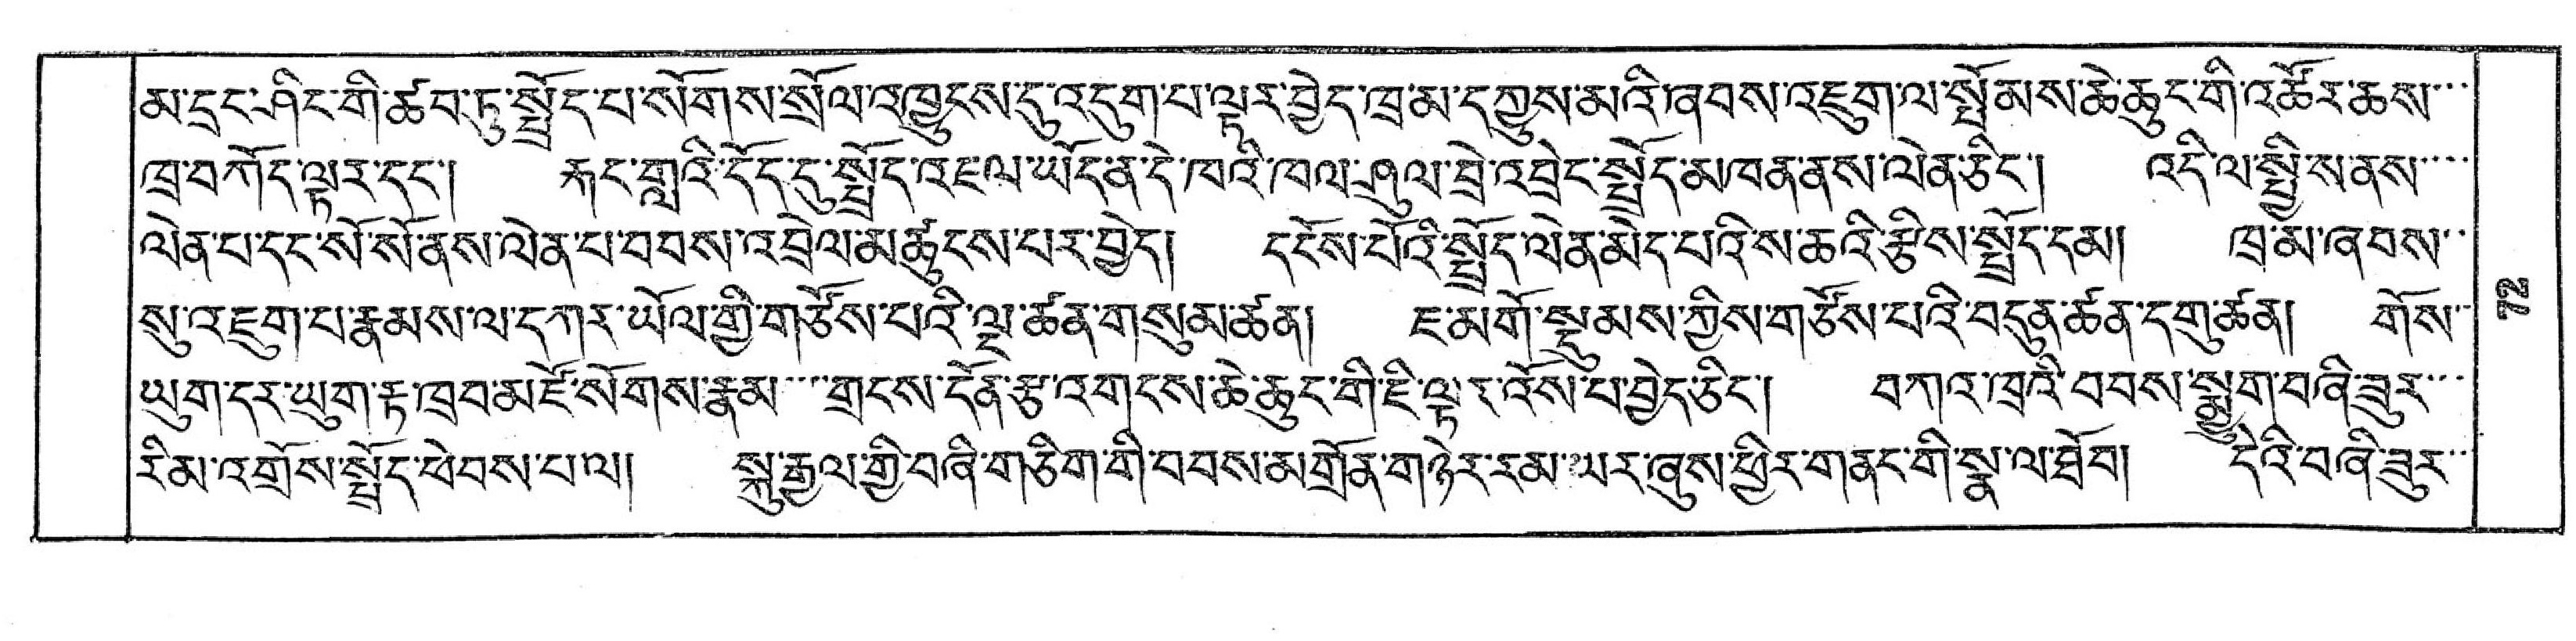 མ་དྲང་ཤིང་གི་ཚབ་ཏུ་སྤྲོད་པ་སོགས་སྲོལ་འཁྱུངས་དུ་འདུག་པ་ལྟར་བྱེད་ཁྲ་མ་དཀྱུས་མའི་ཞབས་འཇུག་ལ་སྤོམས་ཆེ་ཆུང་གི་འཚོར་ཆས་
ཁྲ་བཀོད་ལྟར་དང་། རྐང་གླའི་དོད་དུ་སྤྲོད་འཇལ་ཡོད་ན་དེ་ཁའི་ཁལ་ཤུལ་བྲེ་འབྲེང་སྤྲོད་མཁན་ནས་ལེན་ཅིང་། འདི་ལ་སྤྱི་ས་ནས་
ལེན་པ་དང་སོ་སོ་ནས་ལེན་པ་བབས་འབྲེལ་མཚུངས་པར་བྱེད། དངོས་པོའི་སྤྲོད་ལེན་མེད་པའི་ས་ཆའི་རྩིས་སྤྲོད་དམ། ཁྲ་མ་ཞབས་
སུ་འཇུག་པ་རྣམས་ལ་དཀར་ཡོལ་གྱི་གཙོས་པའི་ལྔ་ཚན་གསུམ་ཚན། ཇ་མགོ་སྡུམས་ཀྱིས་གཙོས་པའི་བདུན་ཚན་དགུ་ཚན། གོས་
ཡུག་དར་ཡུག་རྟ་ཁྲབ་མཛོ་སོགས་རྣམ་གྲངས་དོན་རྩ་འགངས་ཆེ་ཆུང་གི་ཇི་ལྟར་འོས་པ་བྱེད་ཅིང་། བཀའ་ཁྲའི་བབས་སྨྱུག་བཞི་ཟུར་
རིམ་འགྲོས་སྤྲོད་ཕེབས་པ་ལ། སྐུ་རྒྱལ་གྱི་བཞི་གཅིག་གི་བབས་མགྲོན་གཉེར་རམ་ཡར་ཞུས་ཕྱིར་གནང་གི་སྣ་ལ་ཐོབ། དེའི་བཞི་ཟུར་